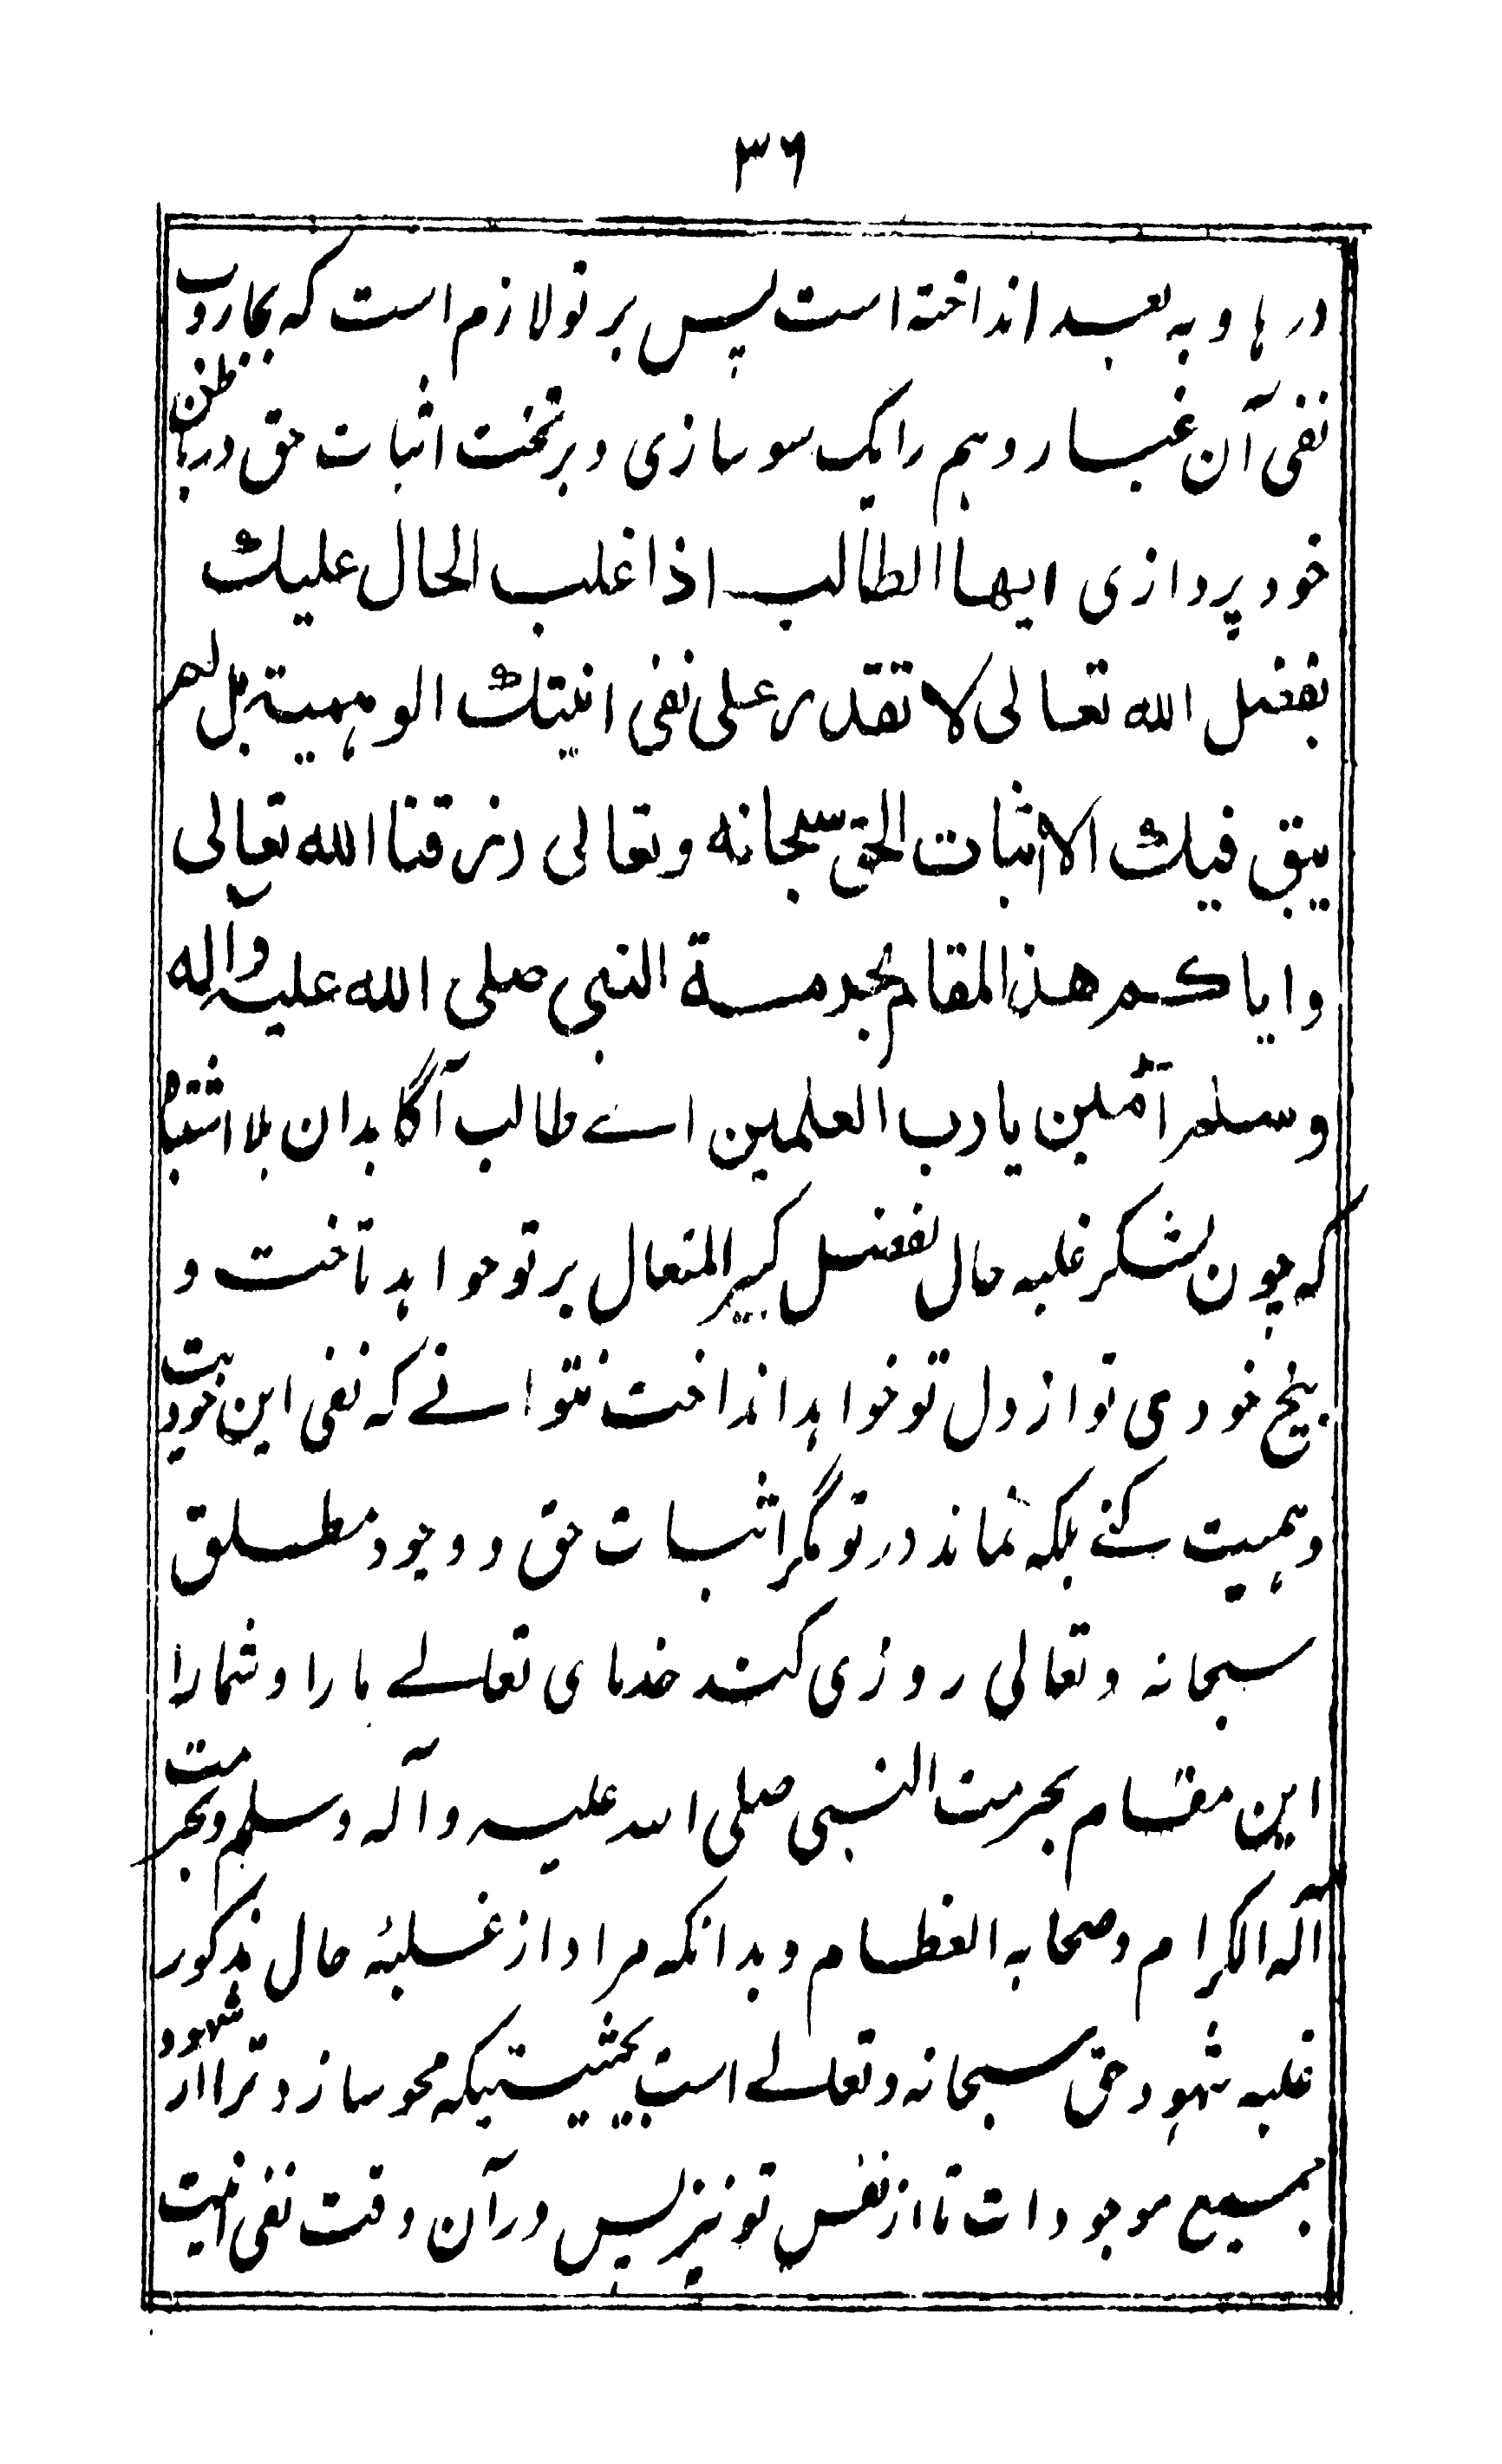 ۳۶
در ها و به بعد انداخته است پس بر تو لازم است که بجاروب
نفی آن غبار وهم را یک سو سازی و بر تخت اثبات حق در باطن
خود پردازی ایها الطالب اذا غلب الحال علیک
بفضل الله تعالی لا تقدر علی نفی انیتک الوهمیة بل لم
یبق فیک الا اثبات الحق سبحانه وتعالی رزقنا الله تعالی
وایاکم هذا المقام بحرمة النبی صلی الله علیه وآله
وسلم آمین یا رب العلمین اے طالب آگاه بدان بلا اشتباه
که چون لشکر غلبه حال بفضل کبیر المتعال بر تو خواهد تاخت و
بیخ خودی تو از دل تو خواهد انداخت نتوانے که نفی این خودیت
وهمیت کنے بلکه نماند در تو مگر اثبات حق و وجود مطلق
سبحانه وتعالی روزی کند خدای تعالے ما را و شما را
این مقام بحرمت النبی صلی الله علیه وآله وسلم وبحرمت
آله الکرام وصحابه العظام و بدانکه مراد از غلبۀ حال مذکور
غلبه شهود حق سبحانه وتعالے است بحیثیتیکه محو سازد ترا از شهود
جمیع موجودات تا از نفس تو نیز پس در آن وقت نفی انیت